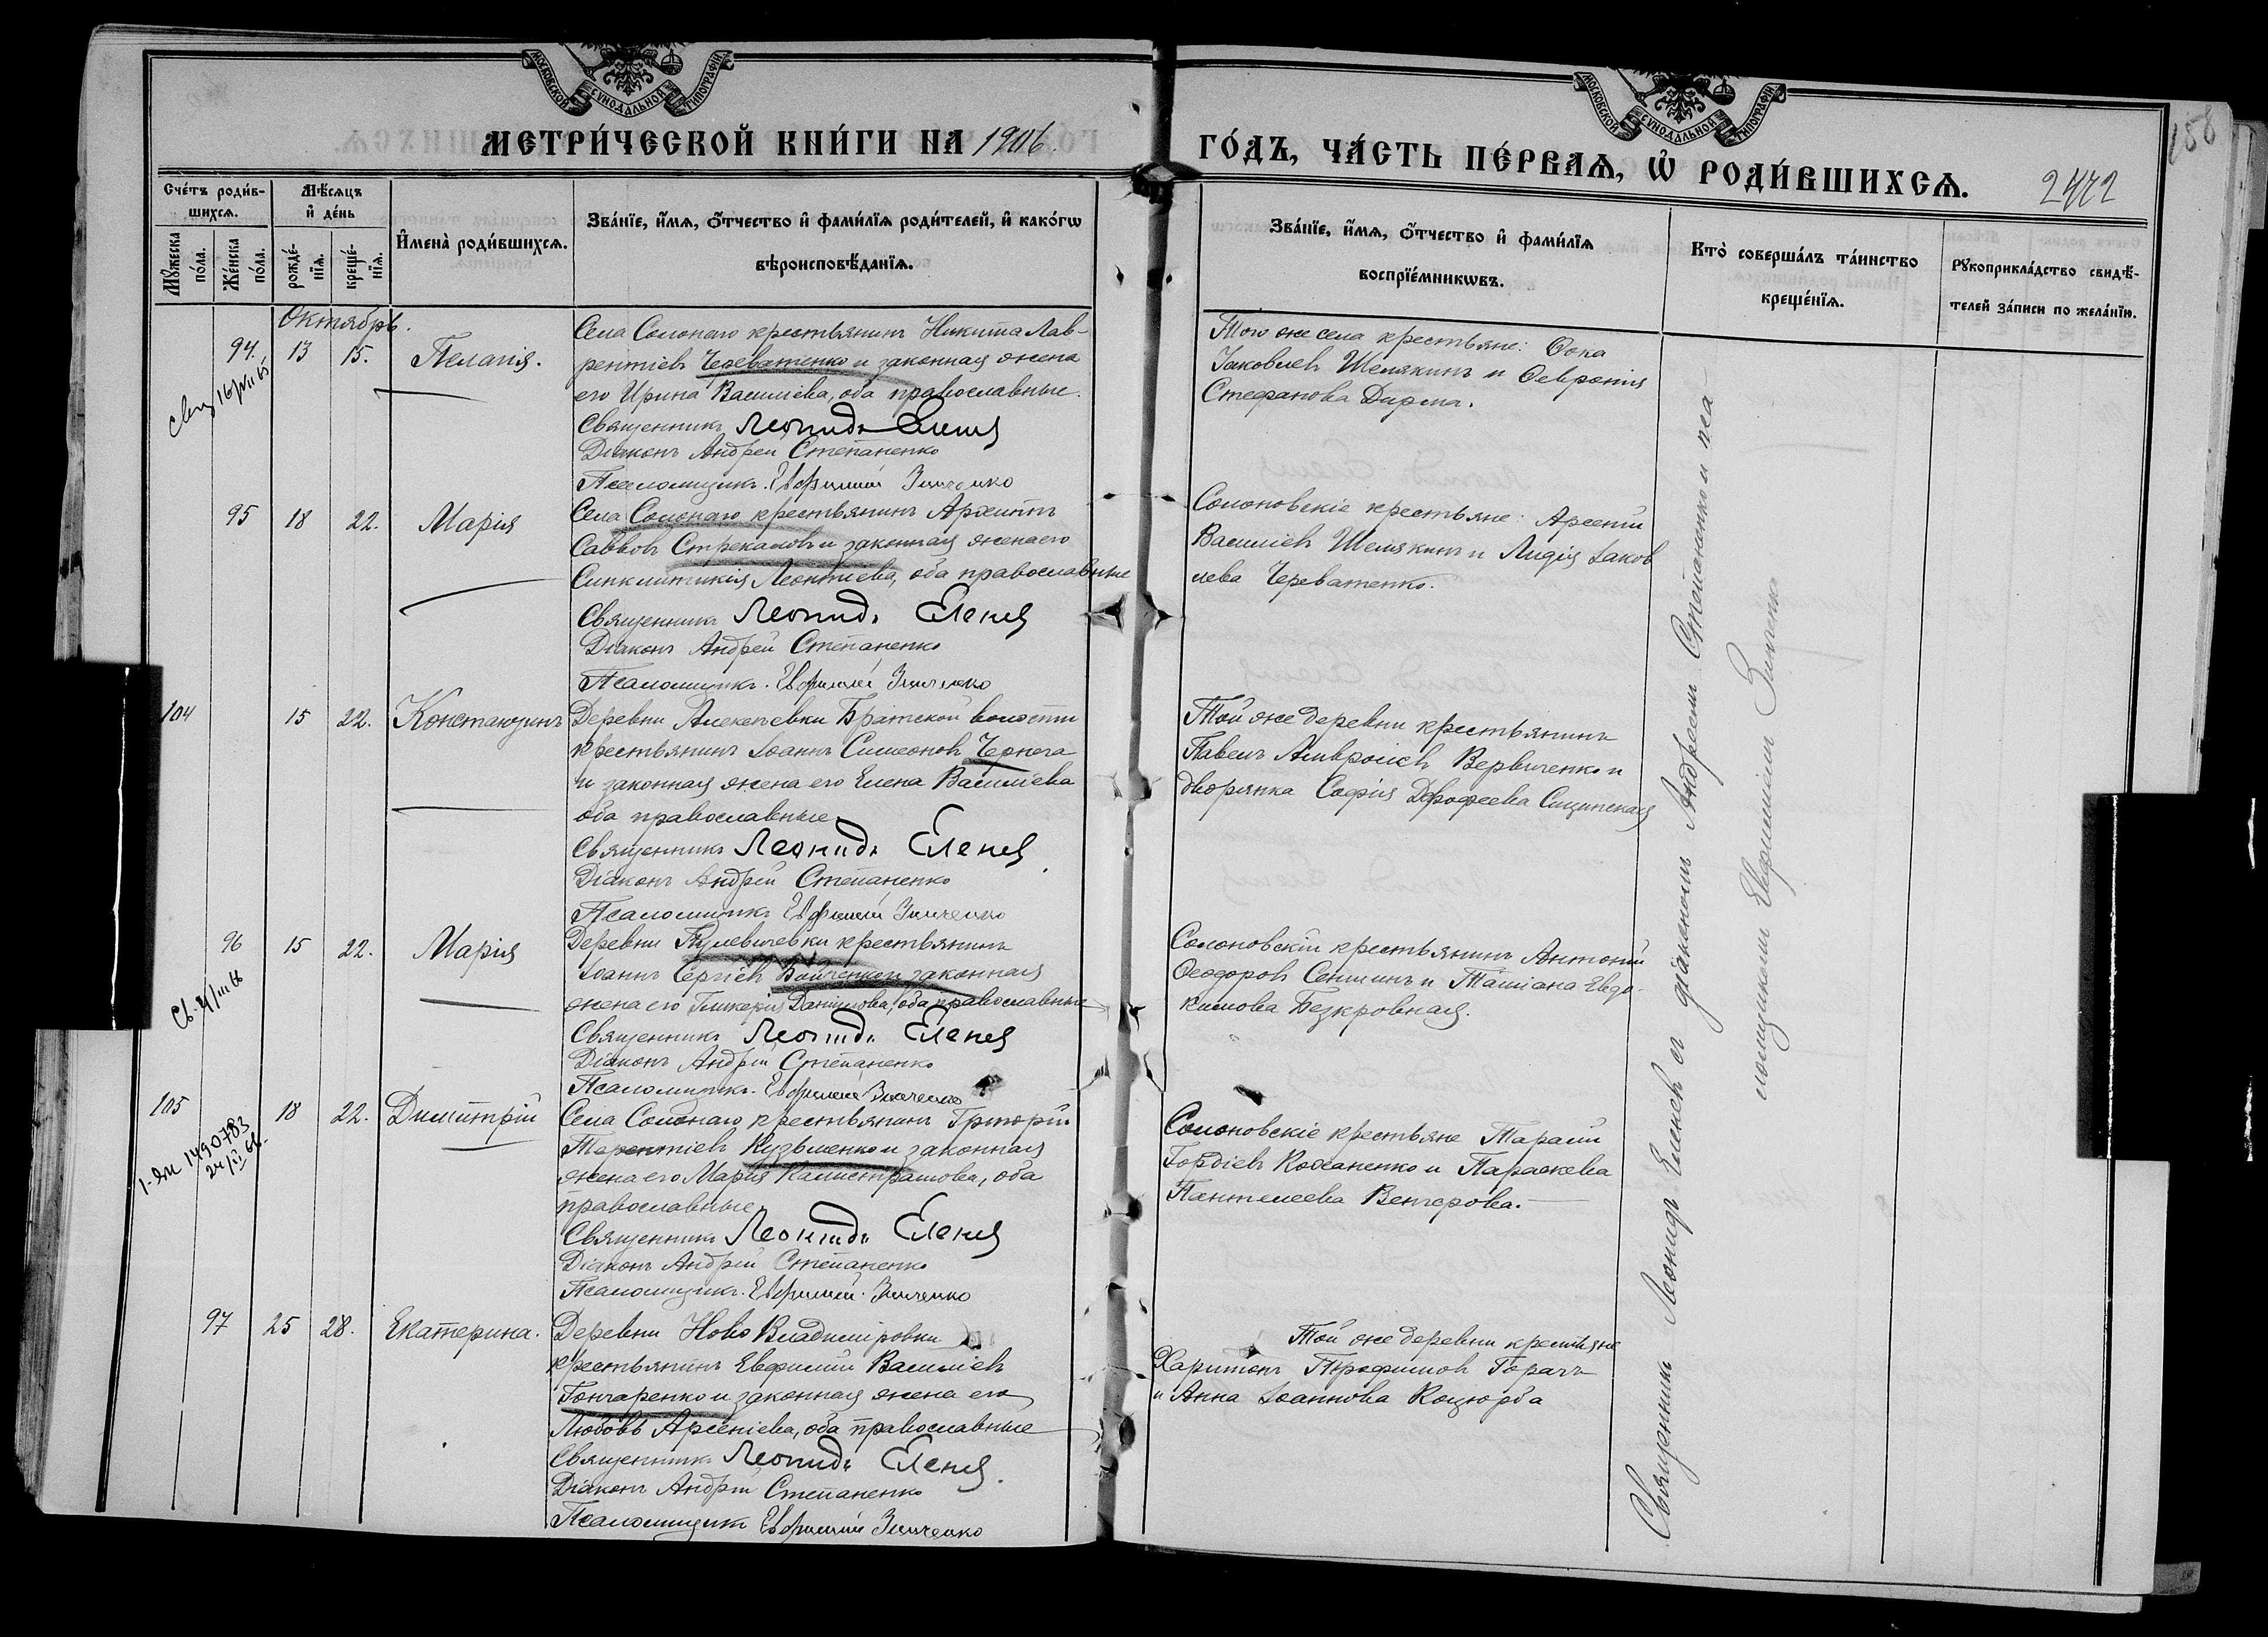 МОСКОВСКОЙ СѴНОДАЛЬНОЙ ТИПОГРАФІИ
МОСКОВСКОЙ СѴНОДАЛЬНОЙ ТИПОГРАФІИ
МЕТРИ́ЧЕСКОЙ КНИ́ГИ НА 1906
ГО́ДЪ, ЧА́СТЬ ПЕ́РВАѦ, Ѡ҆ РОДИ́ВШИХСѦ.
2472
158
Сче́тъ роди́в-
шихсѧ.
Мꙋ́жеска
по́ла.
Же́нска
по́ла.
Мѣ́сѧцъ
и҆ де́нь
рожде́-
нїѧ.
креще́-
нїѧ.
И҆мена̀ роди́вшихсѧ.
Зва́нїе, и҆́мѧ, ѻ҆́тчество и҆ фами́лїѧ роди́телей, и҆ како́гѡ
вѣроисповѣ́данїѧ.
Зва́нїе, и҆́мѧ, ѻ҆́тчество и҆ фами́лїѧ
воспрїе́мникѡвъ.
Кто̀ соверша́лъ та́инство
креще́нїѧ.
Рꙋкоприкла́дство свидѣ́-
телей за́писи по жела́нїю.
Октябрь.
94. 13 15. Пелагія.
Села Солонаго крестьянинъ Никита Лав-
рентіевъ Череватенко и законная жена
его Ирина Василіева, оба православные.
Священникъ Леонидъ Еленев
Діаконъ Андрей Степаненко
Псаломщикъ Евфимій Зинченко
Того же села крестьяне: Фока
Іаковлевъ Шемякинъ и Февронія
Стефанова Дирма.
95 18 22. Марія
Села Солонаго крестьянинъ Архиппъ
Саввовъ Стрекаловъ и законная жена его
Синклитикія Леонтіева, оба православные
Священникъ Леонидъ Еленев
Діаконъ Андрей Степаненко
Псаломщикъ Евфимій Зинченко
Солоновскіе крестьяне: Арсеній
Василіевъ Шемякинъ и Лидія Іаков
лева Череватенко.
104 15 22. Константинъ
Деревни Алексѣевки Братской волости
крестьянинъ Іоаннъ Симеоновъ Чернега
и законная жена его Елена Василіева
оба православные
Священникъ Леонидъ Еленев
Діаконъ Андрей Степаненко
Псаломщикъ Евфимій Зинченко
Той же деревни крестьянинъ
Павелъ Амвросіевъ Вервиченко и
дворянка Софія Дорофеева Сицинская
96 15 22. Марія
Деревни Кулевичевки крестьянинъ
Іоаннъ Сергіевъ Войченко и законная
жена его Гликерія Даніилова, оба православные
Священникъ Леонидъ Еленев
Діаконъ Андрей Степаненко
Псаломщикъ Евфимій Зинченко
Солоновскій крестьянинъ Антоній
Феодоровъ Сенинъ и Татіана Евдо-
кимова Безкровная.
105 18 22. Димитрій
1490783
Села Солонаго крестьянинъ Григорій
Терентіевъ Кузьменко и законная
жена его Марія Калистратова, оба
православные
Священникъ Леонидъ Еленев
Діаконъ Андрей Степаненко
Псаломщикъ Евфимій Зинченко
Солоновскіе крестьяне Тарасій
Гордіевъ Коханенко и Параскева
Пантелеева Вечерова.
97 25 28. Екатерина.
Деревни Ново Владиміровки
крестьянинъ Евфимій Василіевъ
Гончаренко и законная жена его
Любовь Арсеніева, оба православные
Священникъ Леонидъ Еленев.
Діаконъ Андрей Степаненко
Псаломщикъ Евфимій Зинченко
Той же деревни крестьяне
Харитонъ Трофимовъ Горачъ
и Анна Іоаннова Коцюрба
Священникъ Леонидъ Еленевъ съ діакономъ Андреемъ Степаненко и пса
ломщикомъ Евфиміемъ Зинченко